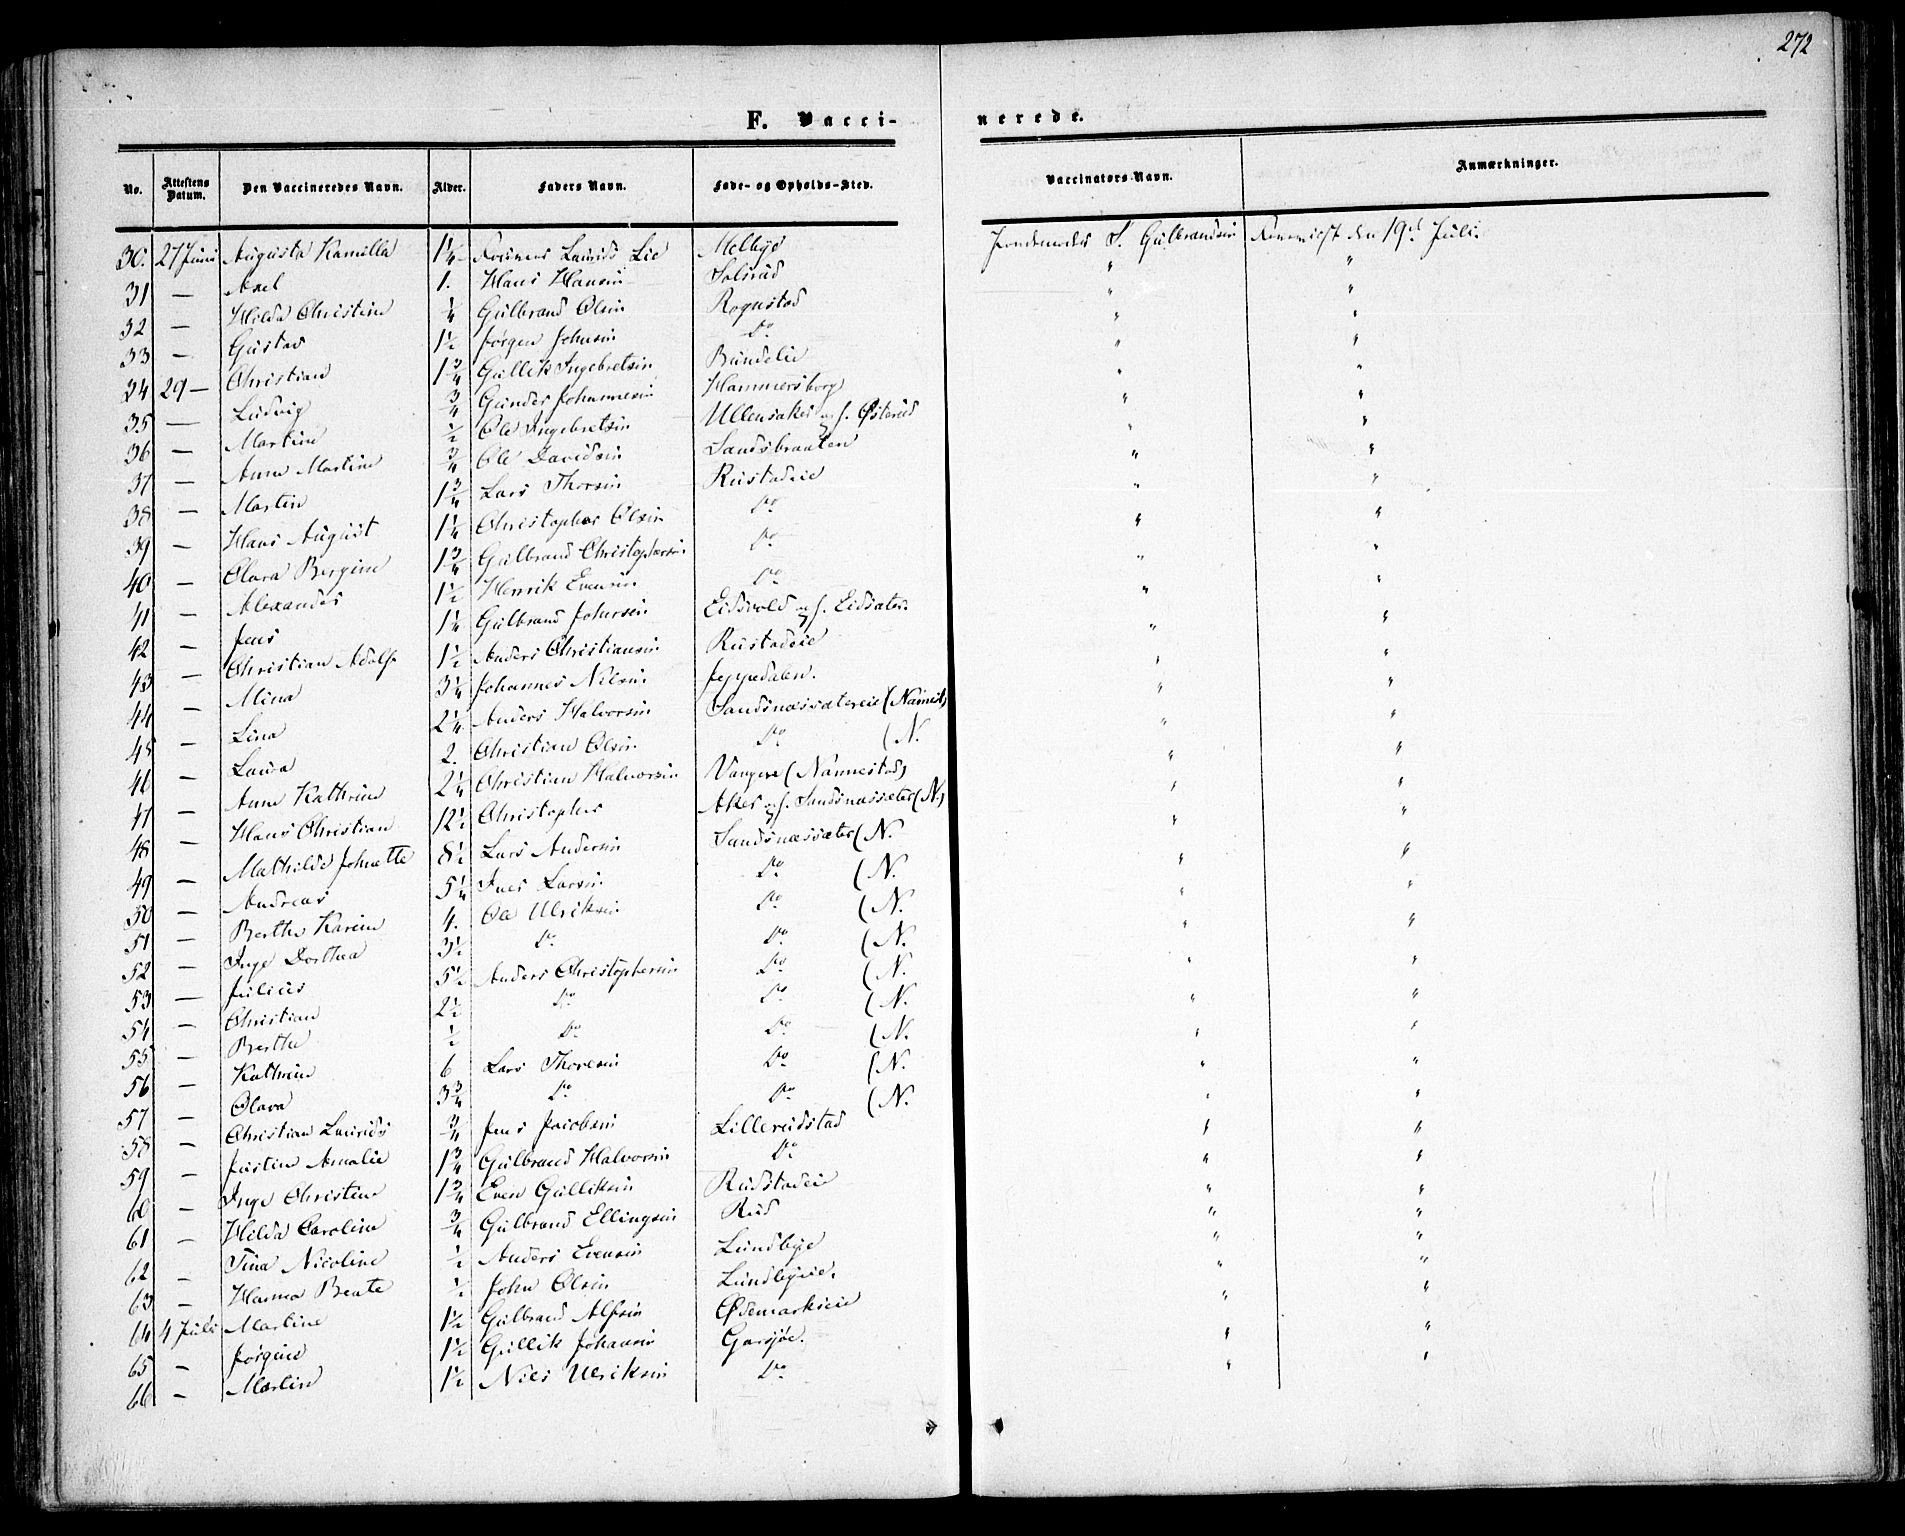 272
F. Vaccinerede.
No. | Attestens Datum. | Den Vaccineredes Navn. | Alder. | Faders Navn. | Føde- og Opholds-Sted. | Vaccinators Navn. | Anmærkninger.
30. | 27 Juni | Augusta Kamilla | 1 1/4 | Laurids Lie | Melbye | Jordemoder S. Gulbrandsen | den 19de Juli.
31 | — | Axel | 1. | Hans Hansen | Solvud | " | "
32 | — | Hilda Christine | 1/4 | Gulbrand Olsen | Rognstad | " | "
33 | — | Gustav | 1 1/2 | Jørgen Johnsen | Do | " | "
34 | 29 — | Christian | 1 3/4 | Gullik Ingebretsen | Bundelie | " | "
35 | — | Ludvig | 3/4 | Gunder Johannesen | Hammersborg | " | "
36 | — | Martine | 1/2 | Ole Ingebretsen | Ullensaker og f. Østerud | " | "
37 | — | Anne Martine | 3/4 | Ole Davidsen | Sandsbraaten | " | "
38 | — | Martin | 1 3/4 | Lars Thorsen | Rustadeie | " | "
39 | — | Hans August | 1 1/4 | Christopher Olsen | Do | " | "
40 | — | Olava Bergine | 1 3/4 | Gulbrand Christophersen | Do | " | "
41 | — | Alexander | 1 1/2 | Henrik Evensen | Do | " | "
42 | — | Jens | 1 1/4 | Gulbrand Johnsen | Eidsvold og f. Eidsæter | " | "
43 | — | Christian Adolf | 1 1/2 | Anders Christiansen | Rustadeie | " | "
44 | — | Mina | 3 1/4 | Johannes Nilsen | Jeppedalen. | " | "
45 | — | Lina | 2 1/4 | Anders Halvorsen | Sandsnæssætereie (Nannest) | " | "
46 | — | Laura | 2. | Christian Olsen | Do (N. | " | "
47 | — | Anne Kathrine | 2 1/4 | Christian Halvorsen | Vangen (Nannestad) | " | "
48 | — | Hans Christian | 12 1/2 | Christopher | Aker og f. Sandsnæssæter (N) | " | "
49 | — | Mathilde Johnette | 8 1/2 | Lars Andersen | Sandsnæssæter (N. | " | "
50 | — | Andreas | 5 1/4 | Iver Larsen | Do (N. | " | "
51 | — | Berthe Karine | 4. | Ole Ulriksen | Do (N. | " | "
52 | — | Inge Dorthea | 3 1/2 | Do | Do (N. | " | "
53 | — | Julius | 5 1/2 | Anders Christophersen | Do (N. | " | "
54 | — | Christian | 2 1/2 | Do | Do (N. | " | "
55 | — | Berthe | 1/2 | Do | Do (N. | " | "
56 | — | Kathrine | 6 | Lars Thoresen | Do (N. | " | "
57 | — | Olava | 3 3/4 | Do | Do (N. | " | "
58 | — | Christian Lauridz | 3/4 | Jens Jacobsen | Lillerudstad | " | "
59 | — | Justine Amalie | 1 3/4 | Gulbrand Halvorsen | Do | " | "
60 | — | Inge Christine | 1 3/4 | Even Gulliksen | Rudstadeie | " | "
61 | — | Hilda Caroline | 3/4 | Gulbrand Ellingsen | Rud | " | "
62 | — | Tina Nicoline | 1/2 | Anders Evensen | Lundbye | " | "
63 | — | Hanna Beate | 1/2 | John Olsen | Lundbyeie. | " | "
64 | 4 Juli | Martine | 1 1/2 | Gulbrand Alfsen | Ødemarkseie | " | "
65 | — | Jørgine | 1 1/2 | Gullik Johansen | Garsjøe. | " | "
66 | — | Martin | 1 1/2 | Niels Ulriksen | Do | " | "